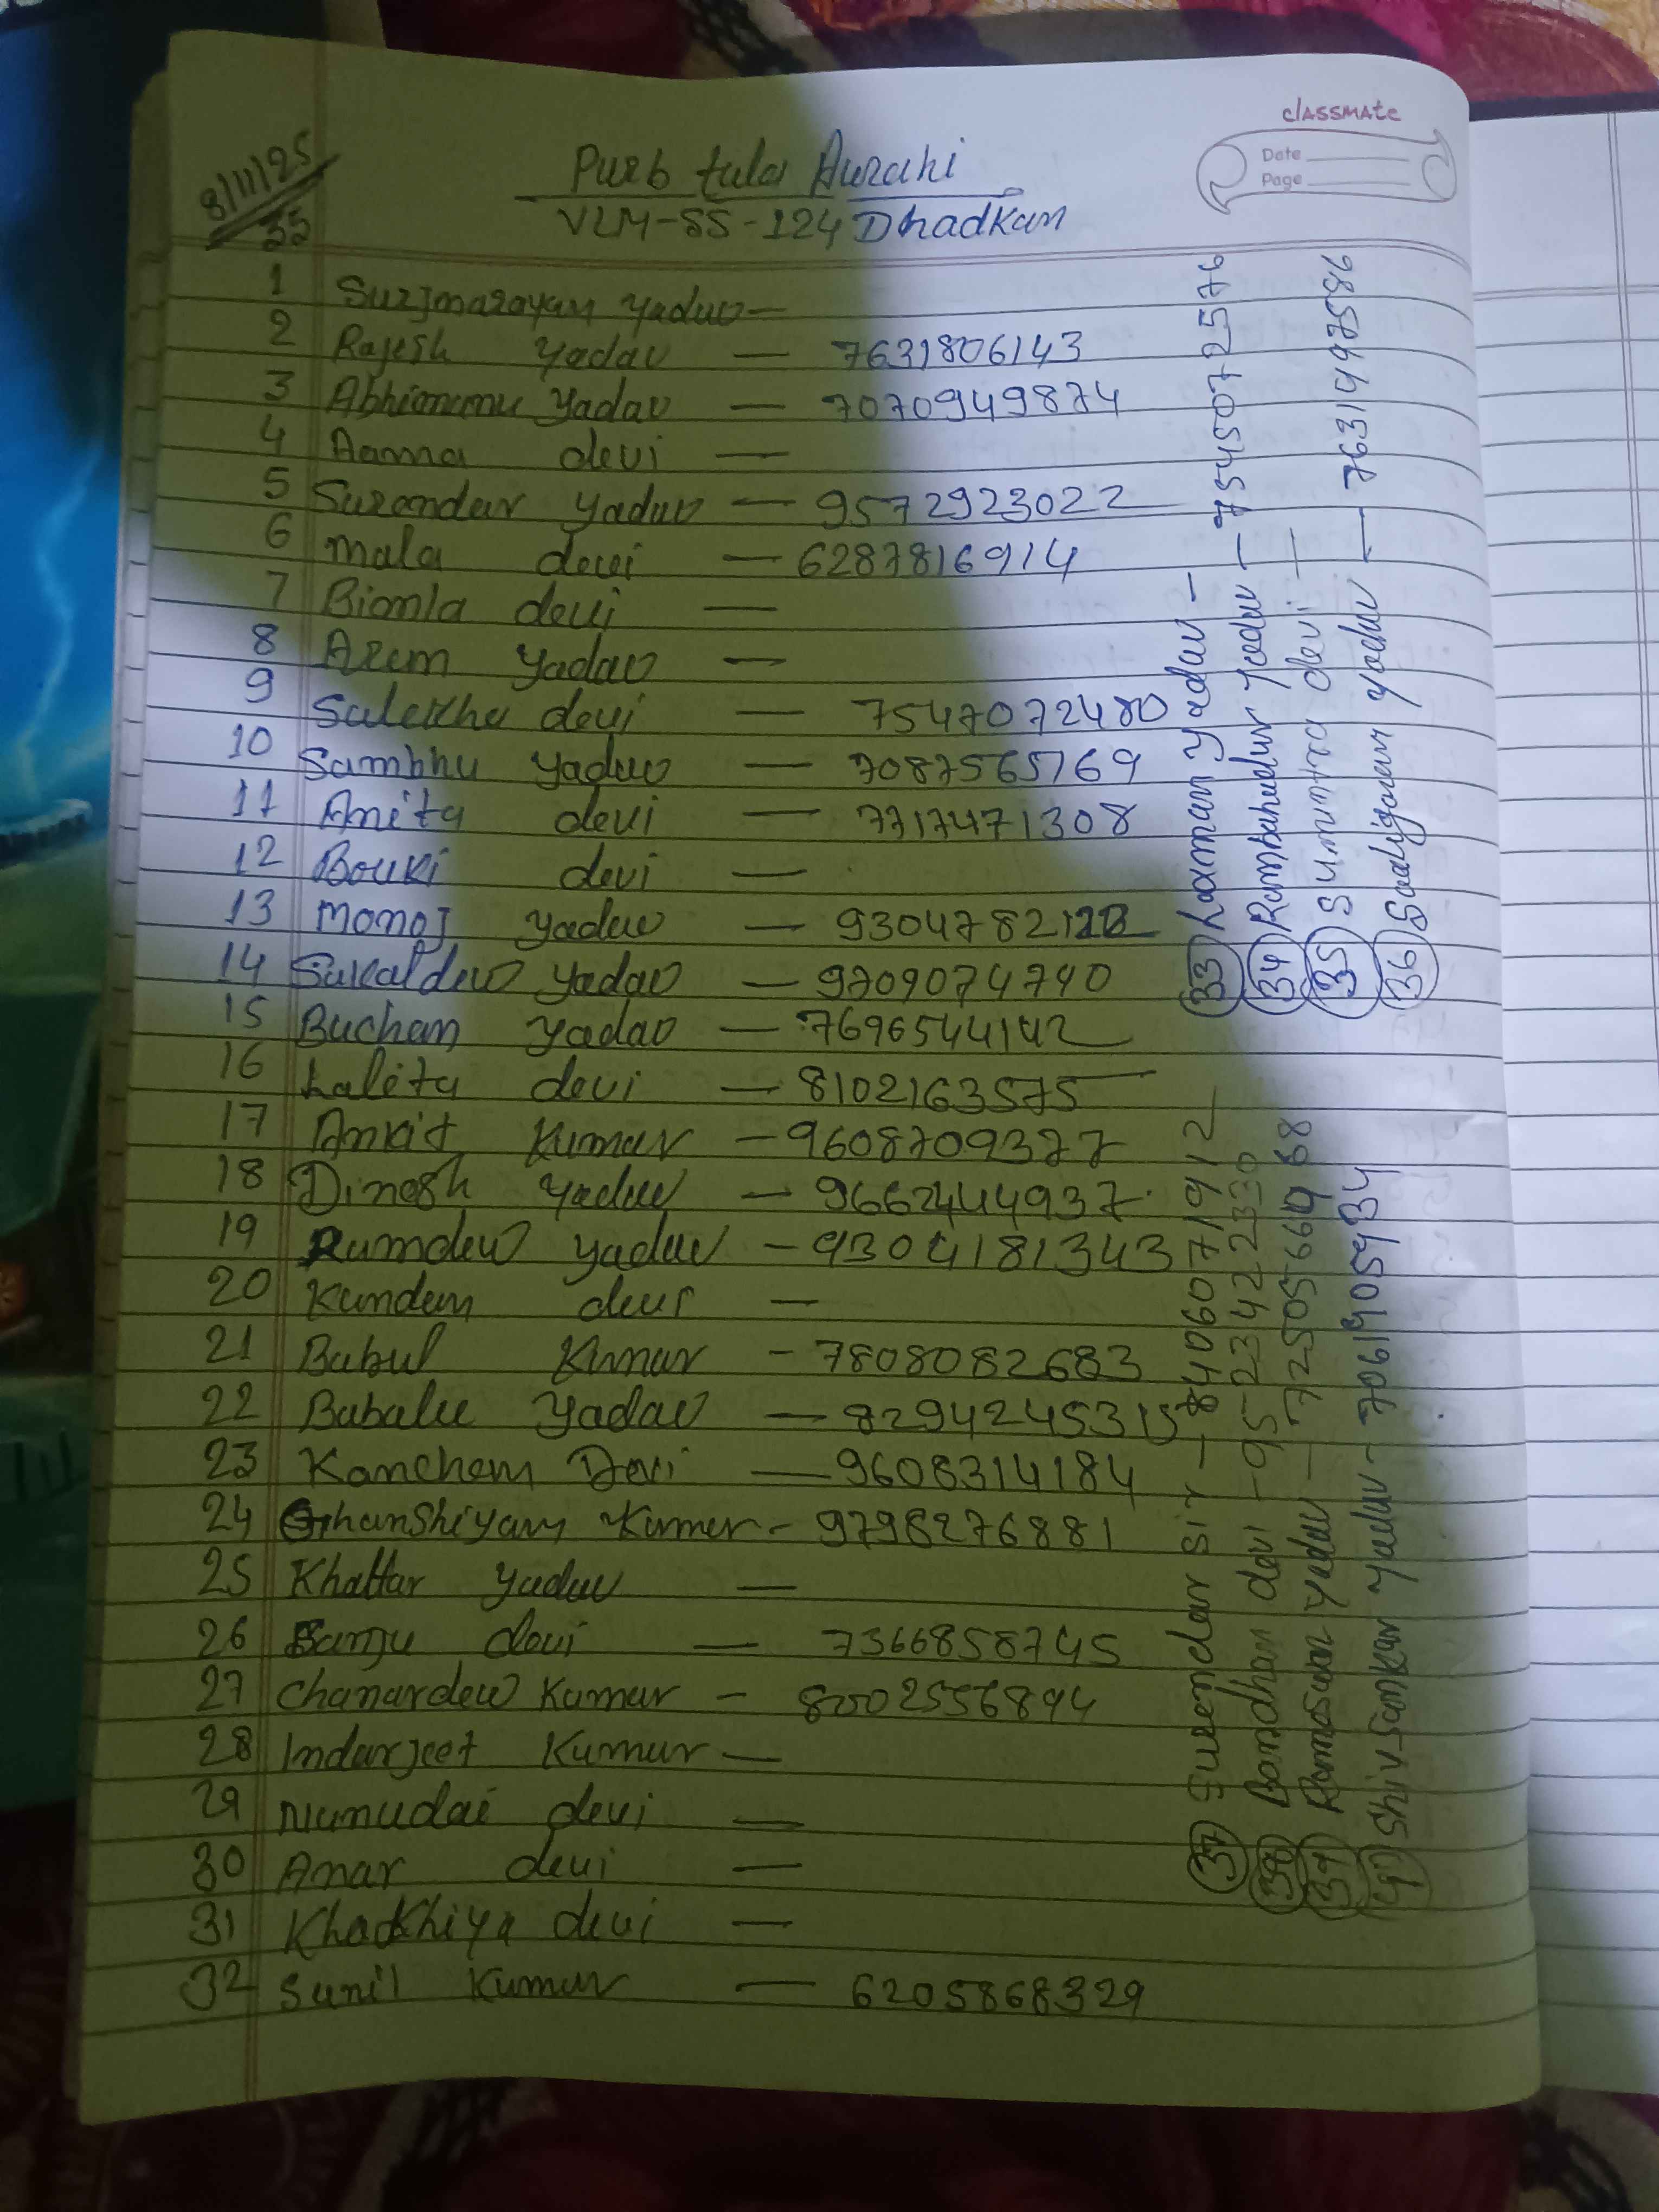 classmate
Date
Page
8/11/25
35
Purb tula Aurahi
VLM-SS-124 Dhadkan
1 Surjnarayan yadav —
2 Rajesh yadav — 7631806143
3 Abhimanu yadav — 7070949874
4 Aama devi —
5 Surendar yadav — 9572923022
6 mala devi — 6287816914
7 Bimla devi —
8 Arun yadav —
9 Sulekha devi — 7547072480
10 Sambhu yadav — 7087565769
11 Anita devi — 7717471308
12 Bouki devi —
13 Monoj yadav —
14 Sakaldew yadav — 9709074740
15 Buchan yadav — 7696544142
16 Lalita devi — 8102163575
17 Ankit Kumar — 9608709377
18 Dinesh yadav — 9662444937
19 Ramdew yadav — 9304181343
20 Kundan devi —
21 Babul Kumar - 7808082683
22 Babalu Yadav — 8294245315
23 Kanchan Devi — 9608314184
24 Ghanshiyam Kumar - 9798276881
25 Khattar yadav —
26 Sanju devi — 7366858745
27 Chanardew Kumar - 8002556894
28 Indarjeet Kumar —
29 Nunudai devi —
30 Anar devi —
31 Khadkhiya devi —
32 Sunil Kumar — 6205868329
33 Laxman yadav -
34 Rambahadur yadav — 7545072576
35 Sumintra devi —
36 Saaligaram yadav — 7631497586
37 Surendar sir — 8406071912
38 Bondhan devi - 9523422339
39 Rameswar yadav —
40 Shiv Sankar Yadav - 7061905934